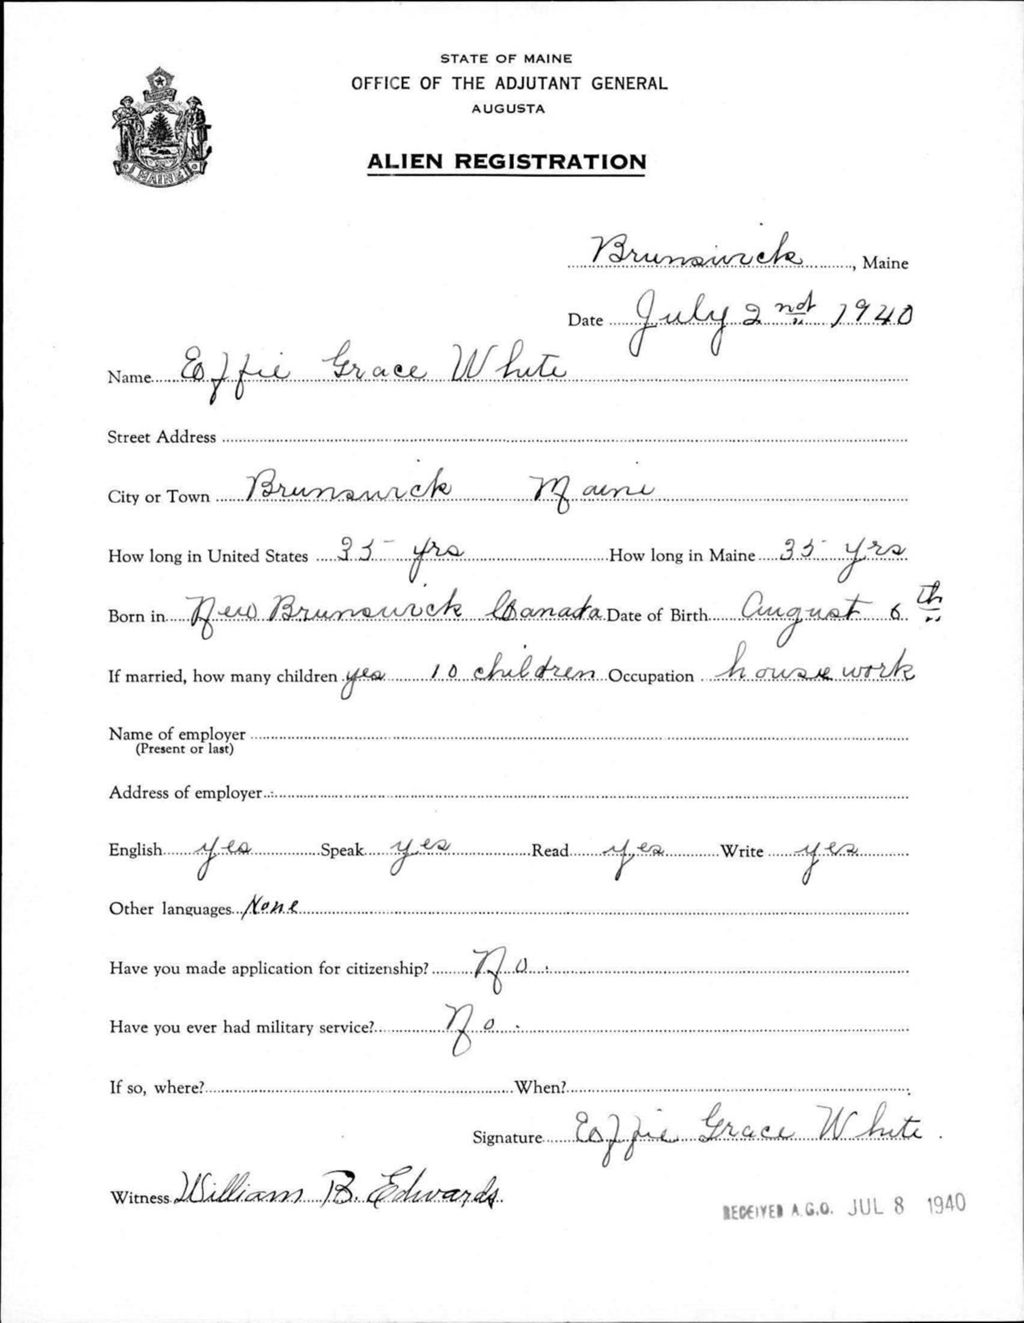 STATE OF MAINE
OFFICE OF THE ADJUTANT GENERAL
AUGUSTA
ALIEN REGISTRATION
MAINE
Brunswick, Maine
Date July 2nd 1940
Name Effie Grace White
Street Address
City or Town Brunswick Maine
How long in United States 35 yrs How long in Maine 35 yrs
Born in New Brunswick Canada Date of Birth August 6th
If married, how many children yes 10 children Occupation housework
Name of employer
(Present or last)
Address of employer
English yes Speak yes Read yes Write yes
Other languages None
Have you made application for citizenship? No.
Have you ever had military service? No.
If so, where? When?
Signature Effie Grace White.
Witness William B. Edwards.
RECEIVED A.G.O. JUL 8 1940